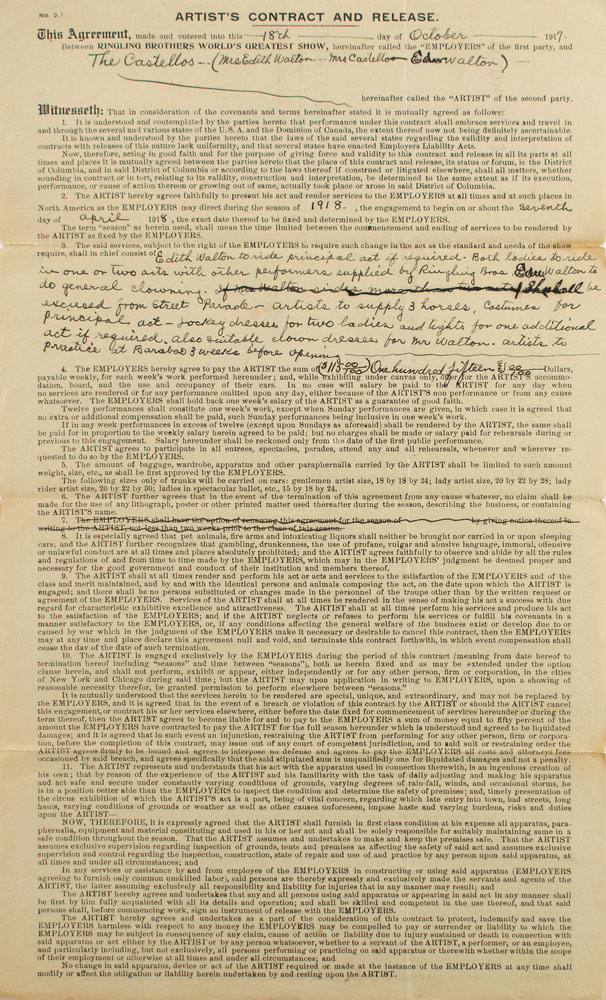 No. 2.
ARTIST'S CONTRACT AND RELEASE.
This Agreement, made and entered into this 18th day of October 1917.
Between RINGLING BROTHERS WORLD'S GREATEST SHOW, hereinafter called the "EMPLOYERS" of the first party, and
The Castellos -- (Mrs Edith Walton -- Mrs Castello -- Edw Walton) --
hereinafter called the "ARTIST" of the second party.
Witnesseth: That in consideration of the covenants and terms hereinafter stated it is mutually agreed as follows:
1. It is understood and contemplated by the parties hereto that performance under this contract shall embrace services and travel in
and through the several and various states of the U. S. A. and the Dominion of Canada, the extent thereof now not being definitely ascertainable.
It is known and understood by the parties hereto that the laws of the said several states regarding the validity and interpretation of
contracts with releases of this nature lack uniformity, and that several states have enacted Employers Liability Acts.
Now, therefore, acting in good faith and for the purpose of giving force and validity to this contract and release in all its parts at all
times and places it is mutually agreed between the parties hereto that the place of this contract and release, its status or forum, is the District
of Columbia, and in said District of Columbia or according to the laws thereof if construed or litigated elsewhere, shall all matters, whether
sounding in contract or in tort, relating to its validity, construction and interpretation, be determined to the same extent as if its execution,
performance, or cause of action thereon or growing out of same, actually took place or arose in said District of Columbia.
2. The ARTIST hereby agrees faithfully to present his act and render services to the EMPLOYERS at all times and at such places in
North America as the EMPLOYERS may direct during the season of 1918, the engagement to begin on or about the Seventh
day of April 1918, the exact date thereof to be fixed and determined by the EMPLOYERS.
The term "season" as herein used, shall mean the time limited between the commencement and ending of services to be rendered by
the ARTIST as fixed by the EMPLOYERS.
3. The said services, subject to the right of EMPLOYERS to require such change in the act as the standard and needs of the show
require, shall in chief consist of Edith Walton to ride principal act if required. Both ladies to ride
in one or two acts with other performers supplied by Ringling Bros Edw Walton to
do general clowning. If Mrs Walton rides more than two acts she shall be
excused from Street Parade - artists to supply 3 horses, Costumes for
Principal act - Jockey dresses for two ladies and tights for one additional
act if required, also suitable clown dresses for Mr Walton. artists to
Practice at Baraboo 3 weeks before opening
4. The EMPLOYERS hereby agree to pay the ARTIST the sum of ($115 00/100) One hundred fifteen & 00/100 Dollars,
payable weekly, for each week's work performed hereunder; and, while exhibiting under canvas only, offer for the ARTIST'S accommo-
dation, board, and the use and occupancy of their cars. In no case will salary be paid to the ARTIST for any day when
no services are rendered or for any performance omitted upon any day, either because of the ARTISTS non performance or from any cause
whatsoever. The EMPLOYERS shall hold back one week's salary of the ARTIST as a guarantee of good faith.
Twelve performances shall constitute one week's work, except when Sunday performances are given, in which case it is agreed that
no extra or additional compensation shall be paid, such Sunday performances being inclusive in one week's work.
If in any week performances in excess of twelve (except upon Sundays as aforesaid) shall be rendered by the ARTIST, the same shall
be paid for in proportion to the weekly salary herein agreed to be paid; but no charges shall be made or salary paid for rehearsals during or
previous to this engagement. Salary hereunder shall be reckoned only from the date of the first public performance.
The ARTIST agrees to participate in all entrees, spectacles, parades, attend any and all rehearsals, whenever and wherever re-
quested to do so by the EMPLOYERS.
5. The amount of baggage, wardrobe, apparatus and other paraphernalia carried by the ARTIST shall be limited to such amount
weight, size, etc., as shall be first approved by the EMPLOYERS.
The following sizes only of trunks will be carried on cars: gentlemen artist size, 18 by 18 by 24; lady artist size, 20 by 22 by 28; lady
rider artist size, 20 by 22 by 30; ladies in spectacular ballet, etc., 15 by 18 by 24.
6. The ARTIST further agrees that in the event of the termination of this agreement from any cause whatever, no claim shall be
made for the use of any lithograph, poster or other printed matter used thereafter during the season, describing the business, or containing
the ARTIST'S name.
7. The EMPLOYERS shall have the option of renewing this agreement for the season of by giving notice thereof in
writing to the ARTIST, not less than two weeks prior to the close of this season.
8. It is especially agreed that pet animals, fire arms and intoxicating liquors shall neither be brought nor carried in or upon sleeping
cars; and the ARTIST further recognizes that gambling, drunkenness, the use of profane, vulgar and abusive language, immoral, offensive
or unlawful conduct are at all times and places absolutely prohibited; and the ARTIST agrees faithfully to observe and abide by all the rules
and regulations of and from time to time made by the EMPLOYERS, which may in the EMPLOYERS' judgment be deemed proper and
necessary for the good government and conduct of their institution and members thereof.
9. The ARTIST shall at all times render and perform his act or acts and services to the satisfaction of the EMPLOYERS and of the
class and merit maintained, and by and with the identical persons and animals composing the act, on the date upon which the ARTIST is
engaged; and there shall be no persons substituted or changes made in the personnel of the troupe other than by the written request or
agreement of the EMPLOYERS. Services of the ARTIST shall at all times be rendered in the sense of making his act a success with due
regard for characteristic exhibitive excellence and attractiveness. The ARTIST shall at all times perform his services and produce his act
to the satisfaction of the EMPLOYERS; and if the ARTIST neglects or refuses to perform his services or fulfill his covenants in a
manner satisfactory to the EMPLOYERS, or, if any conditions affecting the general welfare of the business exist or develop due to or
caused by war which in the judgment of the EMPLOYERS make it necessary or desirable to cancel this contract, then the EMPLOYERS
may at any time and place declare this agreement null and void, and terminate this contract forthwith, in which event compensation shall
cease the day of the date of such termination.
10. The ARTIST is engaged exclusively by the EMPLOYERS during the period of this contract (meaning from date hereof to
termination hereof including "seasons" and time between "seasons"), both as herein fixed and as may be extended under the option
clause herein, and shall not perform, exhibit or appear, either independently or for any other person, firm or corporation, in the cities
of New York and Chicago during said time; but the ARTIST may upon application in writing to EMPLOYERS, upon a showing of
reasonable necessity therefor, be granted permission to perform elsewhere between "seasons."
It is mutually understood that the services herein to be rendered are special, unique, and extraordinary, and may not be replaced by
the EMPLOYERS, and it is agreed that in the event of a breach or violation of this contract by the ARTIST or should the ARTIST cancel
this engagement, or contract his or her services elsewhere, either before the date fixed for commencement of services hereunder or during the
term thereof, then the ARTIST agrees to become liable for and to pay to the EMPLOYERS a sum of money equal to fifty percent of the
amount the EMPLOYERS have contracted to pay the ARTIST for the full season hereunder which is understood and agreed to be liquidated
damages; and it is agreed that in such event an injunction, restraining the ARTIST from performing for any other person, firm or corpora-
tion, before the completion of this contract, may issue out of any court of competent jurisdiction, and to said suit or restraining order the
ARTIST agrees firmly to be bound and agrees to interpose no defense and agrees to pay the EMPLOYERS all costs and attorneys fees
occasioned by said breach, and agrees specifically that the said stipulated sum is unqualifiedly one for liquidated damages and not a penalty.
11. The ARTIST represents and understands that his act with the apparatus used in connection therewith, is an ingenious creation of
his own; that by reason of the experience of the ARTIST and his familiarity with the task of daily adjusting and making his apparatus
and act safe and secure under constantly varying conditions of grounds, varying degrees of rain-fall, winds, and occasional storms, he
is in a position better able than the EMPLOYERS to inspect the condition and determine the safety of premises; and, timely presentation of
the circus exhibition of which the ARTIST'S act is a part, being of vital concern, regarding which late entry into town, bad streets, long
hauls, varying conditions of grounds or weather as well as other causes unforeseen, impose haste and varying burdens, risks and duties
upon the ARTIST—
NOW, THEREFORE, it is expressly agreed that the ARTIST shall furnish in first class condition at his expense all apparatus, para-
phernalia, equipment and material constituting and used in his or her act and shall be solely responsible for suitably maintaining same in a
safe condition throughout the season. That the ARTIST assumes and undertakes to make and keep the premises safe. That the ARTIST
assumes exclusive supervision regarding inspection of grounds, tents and premises as affecting the safety of said act and assumes exclusive
supervision and control regarding the inspection, construction, state of repair and use of and practice by any person upon said apparatus, at
all times and under all circumstances; and
In any services or assistance by and from employes of the EMPLOYERS in constructing or using said apparatus (EMPLOYERS
agreeing to furnish only common unskilled labor), said persons are thereby expressly and exclusively made the servants and agents of the
ARTIST, the latter assuming exclusively all responsibility and liability for injuries that in any manner may result; and
The ARTIST hereby agrees and undertakes that any and all persons using said apparatus or appearing in said act in any manner shall
be first by him fully acquainted with all its details and operation; and shall be skilled and competent in the use thereof, and that said
persons shall, before commencing work, sign an instrument of release with the EMPLOYERS.
The ARTIST hereby agrees and undertakes as a part of the consideration of this contract to protect, indemnify and save the
EMPLOYERS harmless with respect to any money the EMPLOYERS may be compelled to pay or surrender or liability to which the
EMPLOYERS may be subject in consequence of any claim, cause of action or liability due to injury sustained or death in connection with
said apparatus or act either by the ARTIST or by any person whatsoever, whether to a servant of the ARTIST, a performer, or an employee,
and particularly including, but not exclusively, all persons performing or practicing on said apparatus or therewith whether within the scope
of their employment or otherwise at all times and under all circumstances; and
No change in said apparatus, device or act of the ARTIST required or made at the instance of the EMPLOYERS at any time shall
modify or affect the obligation or liability herein undertaken by and resting upon the ARTIST.